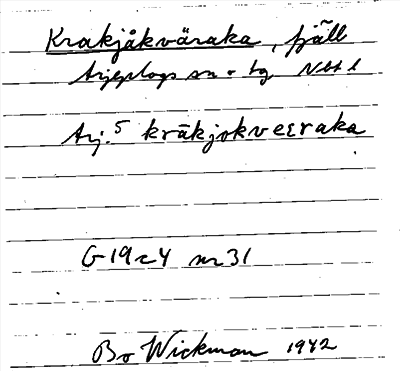 Krakjåkväraka, fjäll
Arjeplogs sn o tg Nbt l
Arj. 5 kräkjokveεraka
G 19 c4 nr 31
Bo Wickman 1942